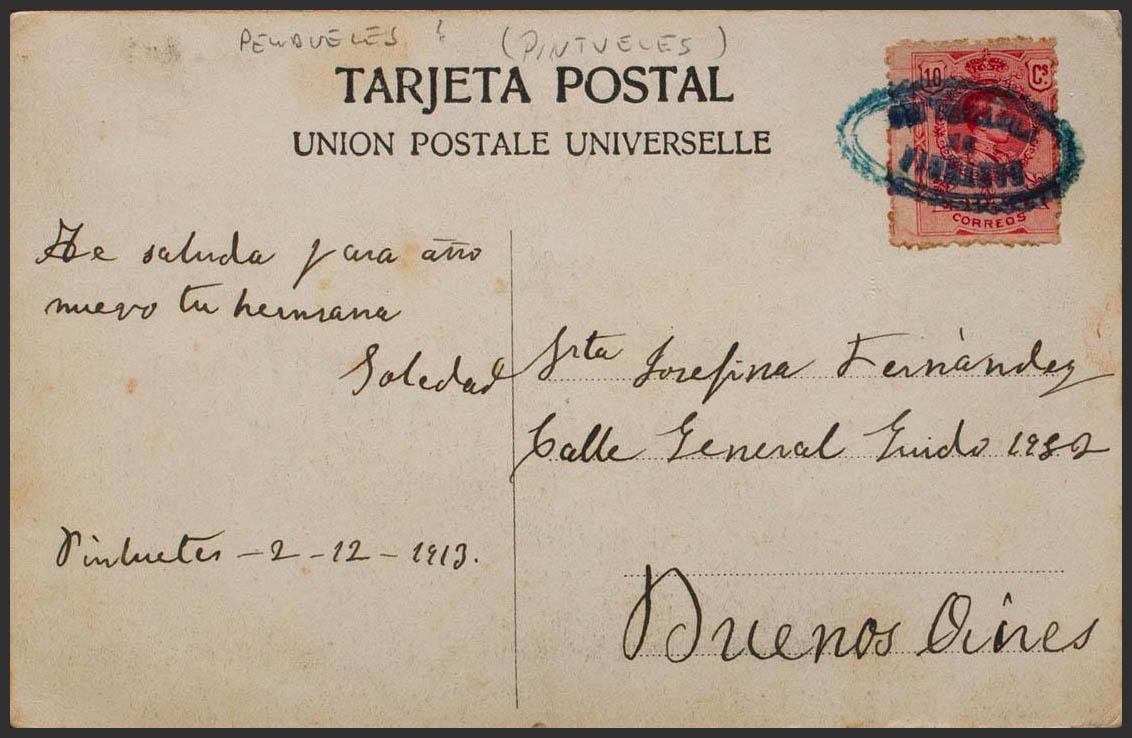 PENDUELES ? (PINTUELES)
TARJETA POSTAL
UNION POSTALE UNIVERSELLE
10 Cs.
CORREOS
CARTERIA
Te saluda para año
nuevo tu hermana
Soledad
Srta Josefina Fernández
Calle General Guido 1982
Pintueles - 2 - 12 - 1913.
Buenos Aires